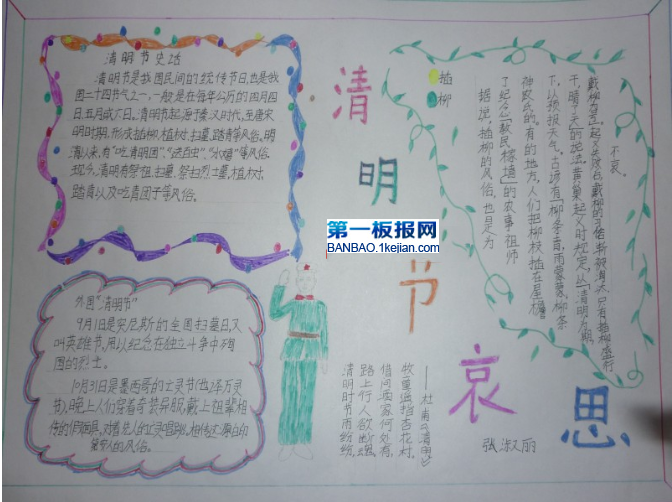 清明节史话
清明节是我国民间的传统节日,也是我
国二十四节气之一,一般是在每年公历的四月四
日、五日或六日。清明节起源于秦汉时代,至唐宋
明时期,形成插柳、植树、扫墓、踏青等风俗。明
清以来,有“吃清明团”、
风俗。
现今,清明有祭祖、扫墓、祭扫烈士墓、植树、
踏青以及吃青团子等风俗。
外国“清明节”
9月1日是突尼斯的全国扫墓日又
叫英雄节,用以纪念在独立斗争中殉
国的烈士。
10月31日是墨西哥的亡灵节(也译万灵
节),晚上人们穿着奇装异服,戴上祖辈相
传的假面具,
的风俗。
清
明
节
哀
思
第一板报网
BANBAO.1kejian.com
插柳
据说,插柳的风俗,也是为
了纪念“教民稼墙”的农事祖师
神农氏的。有的地方,人们把柳枝插在屋檐
下,以预报天气。古语有“柳条青,雨蒙蒙;柳条
干,晴了天”的说法。黄巢起义时规定,以“清明为期,
戴柳为号”。起义失败后,戴柳的习俗渐被淘汰,只有插柳盛行
不衰。
——杜甫《清明》
清明时节雨纷纷,
路上行人欲断魂。
借问酒家何处有,
牧童遥指杏花村。
张淑丽